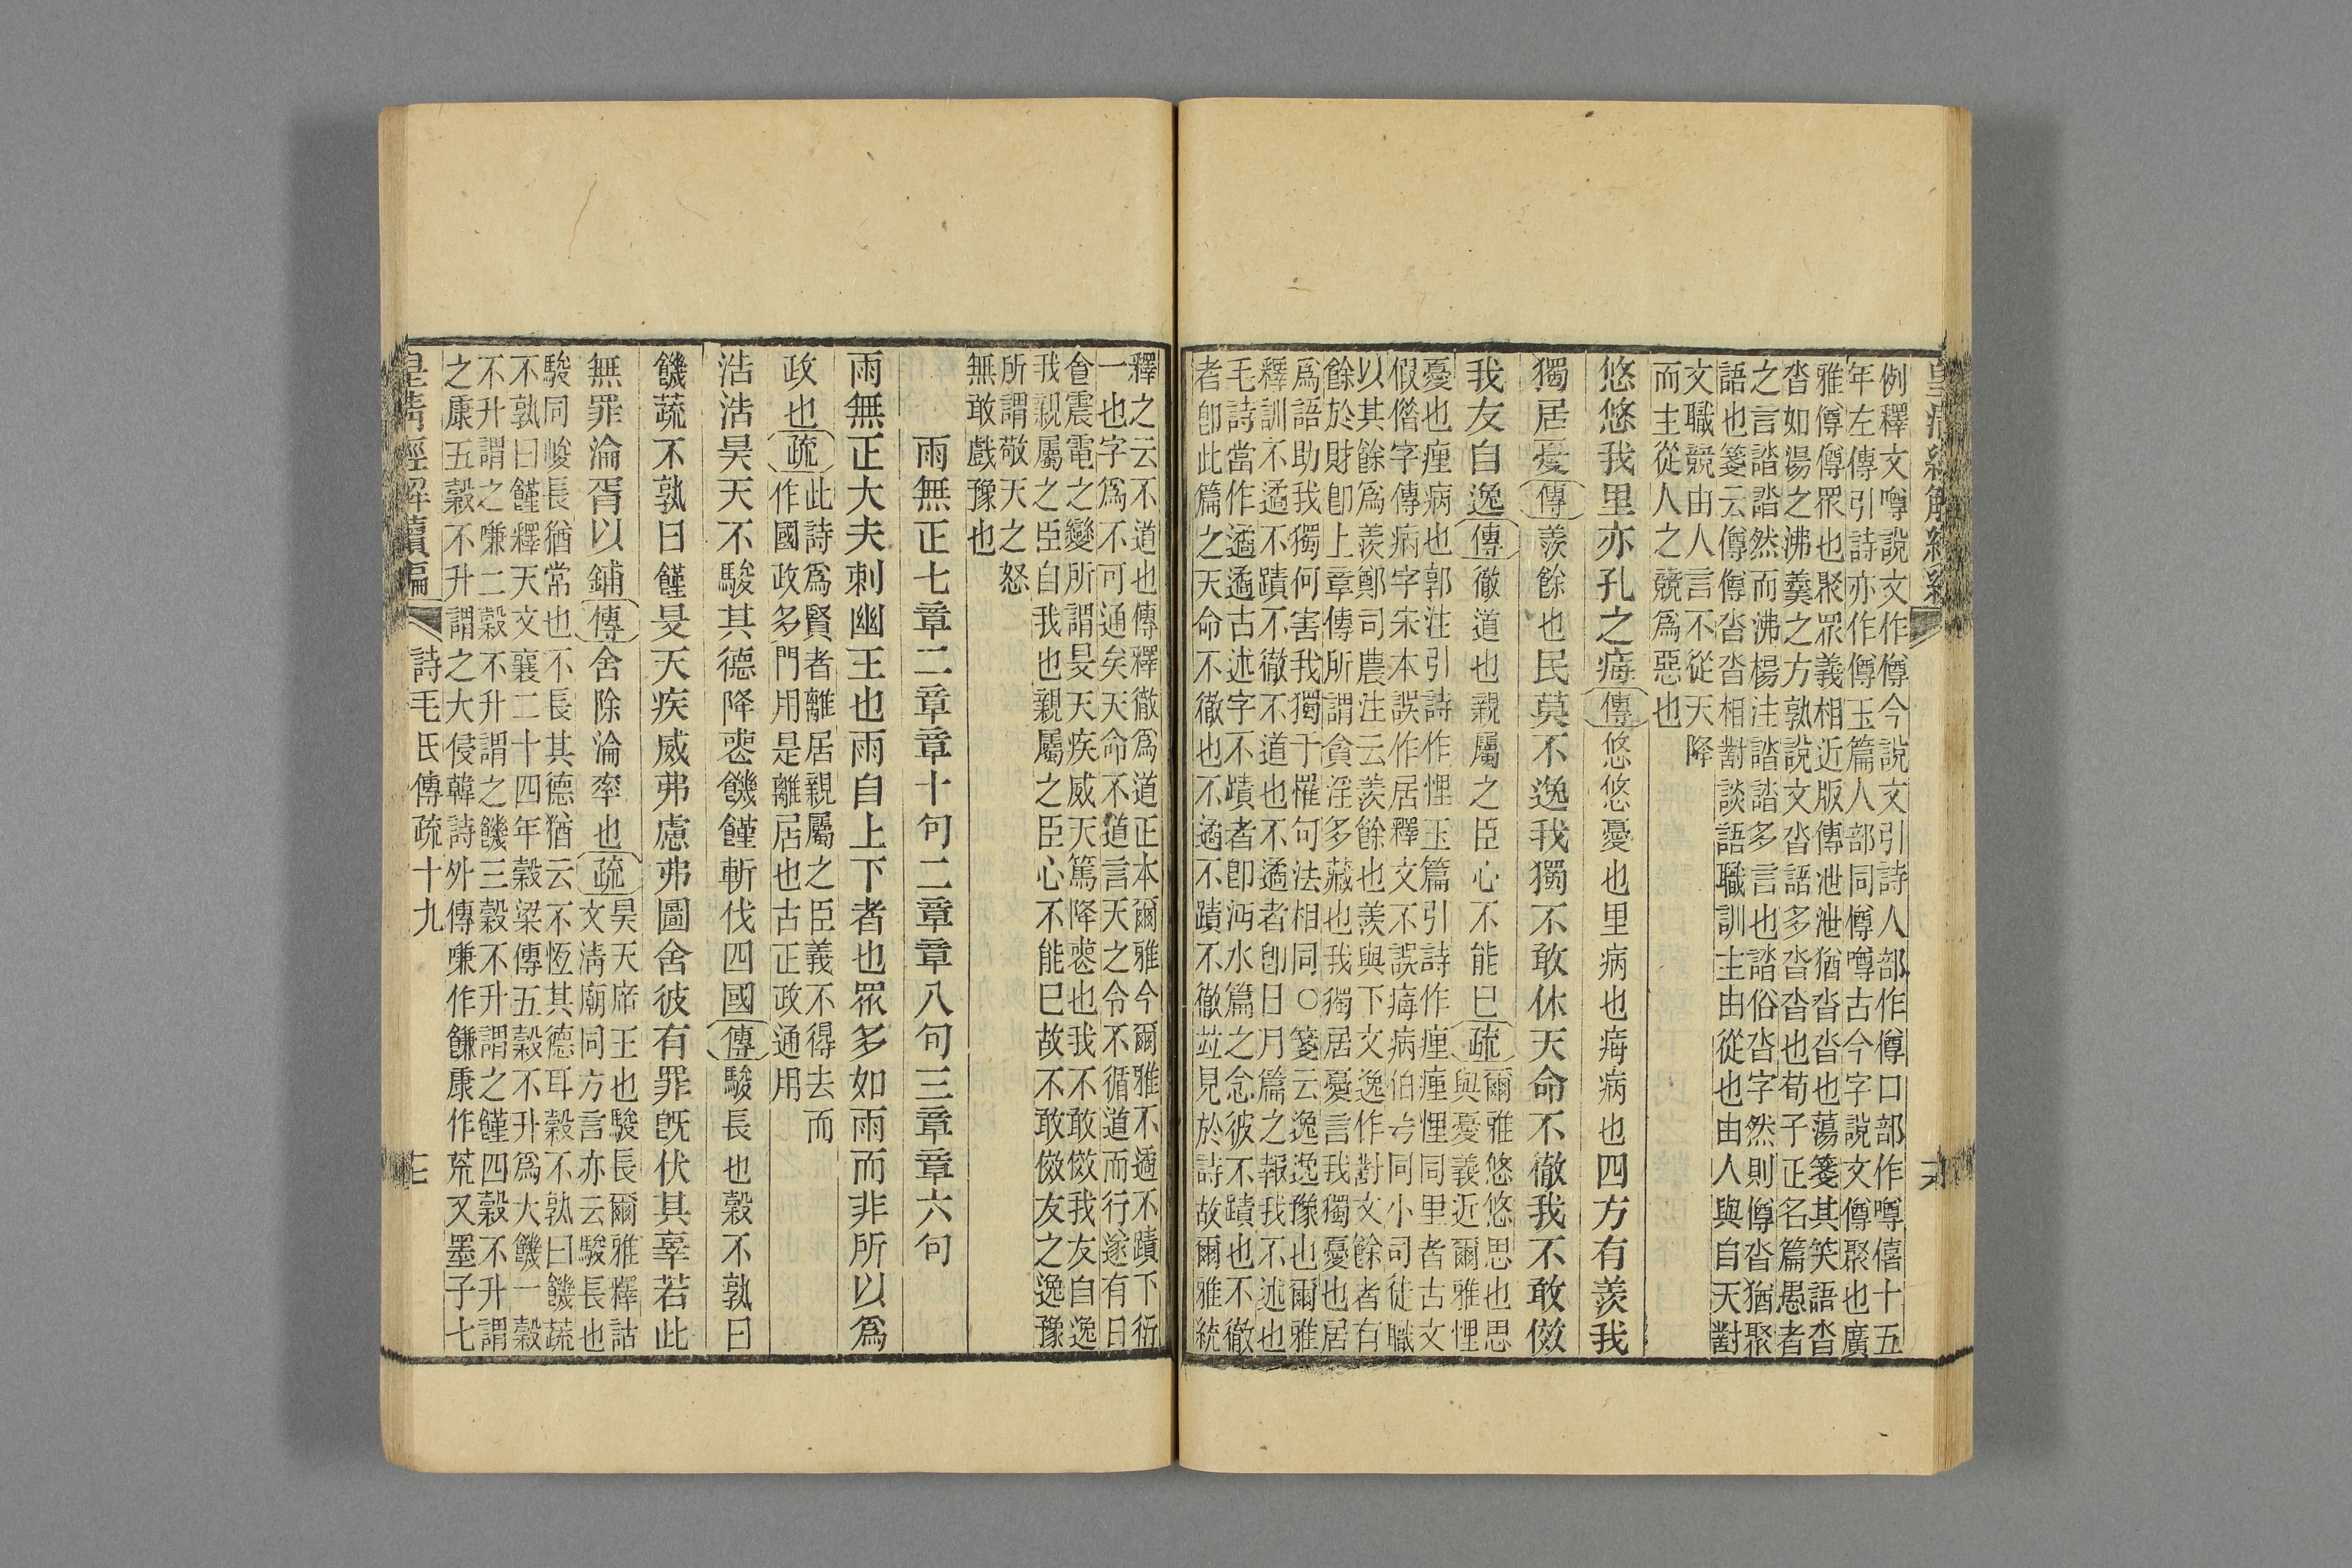 皇清經解續編
例釋文噂說文作僔今說文引詩人部作僔口部作噂僖十五
年左傳引詩亦作僔玉篇人部同僔噂古今字說文僔聚也廣
雅僔僔眾也聚眾義相近版傳泄泄猶沓沓也蕩箋其笑語沓
沓如湯之沸羹之方孰說文沓語多沓沓也荀子正名篇愚者
之言誻誻然而沸楊注誻誻多言也誻俗沓字然則僔沓猶聚
語也箋云僔僔沓沓相對談語職訓主由從也由人與自天對
文職競由人言不從天降
而主從人之競為惡也
悠悠我里亦孔之痗傳悠悠憂也里病也痗病也四方有羨我
獨居憂傳羨餘也民莫不逸我獨不敢休天命不徹我不敢傚
我友自逸傳徹道也親屬之臣心不能已疏爾雅悠悠思也思
與憂義近爾雅悝
憂也瘇病也郭注引詩作悝玉篇引詩作瘇瘇悝同里者古文
假偺字傳病字宋本誤作居釋文不誤痗病伯兮同小司徒職
以其餘為羨鄭司農注云羨餘也羨與下文逸作對文餘者有
餘於財卽上章傳所謂貪淫多藏也我獨居憂言我獨憂也居
為語助我獨何害我獨于罹句法相同○箋云逸逸豫也爾雅
釋訓不遹不蹟不徹不道也不遹者卽日月篇之報我不述也
毛詩當作遹遹古述字不蹟者卽沔水篇之念彼不蹟也不徹
者卽此篇之天命不徹也不遹不蹟不徹竝見於詩故爾雅統
釋之云不道也傳釋徹為道正本爾雅今爾雅不遹不蹟下衍
一也字為不可通矣天命不道言天之令不循道而行遂有日
食震電之變所謂旻天疾威天篤降喪也我不敢傚我友自逸
我親屬之臣自我也親屬之臣心不能已故不敢傚友之逸豫
所謂敬天之怒
無敢戲豫也
雨無正七章二章章十句二章章八句三章章六句
雨無正大夫刺幽王也雨自上下者也眾多如雨而非所以為
政也疏此詩為賢者離居親屬之臣義不得去而
作國政多門用是離居也古正政通用
浩浩昊天不駿其德降喪饑饉斬伐四國傳駿長也穀不孰曰
饑蔬不孰曰饉旻天疾威弗慮弗圖舍彼有罪旣伏其辜若此
無罪淪胥以鋪傳舍除淪率也疏昊天席王也駿長爾雅釋詁
文淸廟同方言亦云駿長也
駿同峻長猶常也不長其德猶云不恆其德耳穀不孰曰饑蔬
不孰曰饉釋天文襄二十四年穀梁傳五穀不升為大饑一穀
不升謂之嗛二穀不升謂之饑三穀不升謂之饉四穀不升謂
之康五穀不升謂之大侵韓詩外傳嗛作饍康作荒又墨子七
皇清經解續編 詩毛氏傳疏十九